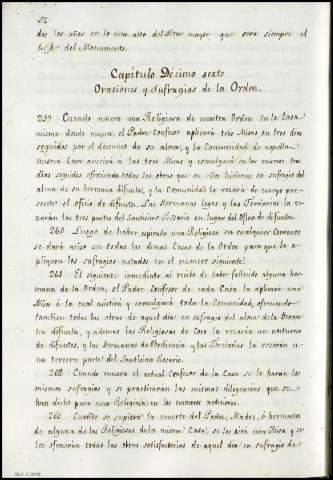 52
dos los años en lo mas alto del Altar mayor que sera siempre el
del Monumento.
Capítulo Décimo sexto
Oraciones y Sufragios de la Orden.
259 Cuando muera una Religiosa de nuestra Orden en la Casa
misma donde muera, el Padre Confesor aplicará tres Misas en tres dias
seguidos por el descanso de su alma; y la Comunidad de aquella
misma Casa asistirá a las tres Misas y comulgará en los mismos tres
dias seguidos ofreciendo todas las obras que en ellos hicieren en sufragio del
alma de su hermana difunta; y la Comunidad la rezará de cuerpo pre-
sente el oficio de difuntos. Las Hermanas legas y las Terciarias la re-
zarán las tres partes del Santisimo Rosario en lugar del Oficio de difuntos.
260 Luego de haber espirado una Religiosa en cualquier Convento
se dará aviso an todas las demas Casas de la Orden para que la a-
pliquen los sufragios notados en el numero siguiente:
261 El siguiente inmediato al recibo de haber fallecido alguna her-
mana de la Orden, el Padre Confesor de cada Casa la aplicará una
Misa á la cual asistirá y comulgará toda la Comunidad, ofreciendo
tambien todas las obras de aquel dia en sufragio del alma de la Herma-
na difunta, y ademas las Religiosas de Coro la rezarán un nocturno
de difuntos, y las Hermanas de Obediencia y las Terciarias la rezarán u-
na tercera parte del Santisimo Rosario.
262 Cuando muera el actual Confesor de la Casa se le harán los
mismos sufragios y se practicarán las mismas diligencias que se
han dicho para una Religiosa en los numeros anteriores.
263 Cuando se supiere la muerte del Padre, Madre, ó hermano
de alguna de las Religiosas de la misma Casa, se les dirá una Misa y se
les ofrecerán todas las obras satisfactorias de aquel dia en sufragio de